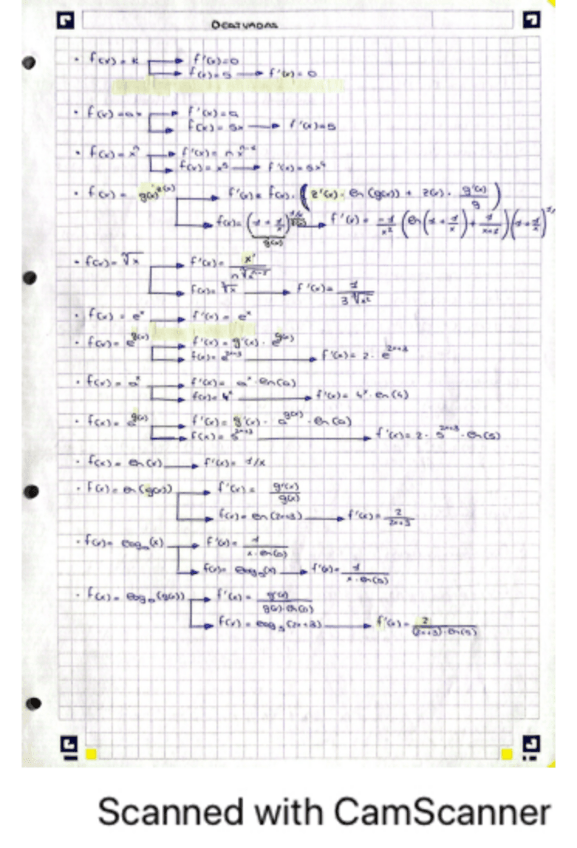 DERIVADAS
· f(x) = k → f'(x)=0
→ f(x)=5 → f'(x)=0
· f(x)=ax → f'(x)=a
→ f(x)=5x → f'(x)=5
· f(x)=xⁿ → f'(x)= n xⁿ⁻¹
→ f(x)=x⁵ → f'(x)=5x⁴
· f(x)= g(x)^z(x) → f'(x)= f(x)· (z'(x)· ln(g(x)) + z(x)· g'(x)/g)
· f(x)= ⁿ√x → f'(x)= x'/(n ⁿ√xⁿ⁻¹)
→ f(x)= ³√x → f'(x)= 1/(3 ³√x²)
· f(x) = eˣ → f'(x)= eˣ
· f(x)= e^g(x) → f'(x)= g'(x)· e^g(x)
→ f(x)= e^2x+3 → f'(x)= 2· e^2x+3
· f(x)= aˣ → f'(x)= aˣ·ln(a)
→ f(x)= 4ˣ → f'(x)= 4ˣ·ln(4)
· f(x)= a^g(x) → f'(x)= g'(x)· a^g(x)·ln(a)
→ f(x)= 5^2x+3 → f'(x)= 2· 5^2x+3·ln(5)
· f(x)= ln(x) → f'(x)= 1/x
· f(x)= ln(g(x)) → f'(x)= g'(x)/g(x)
→ f(x)= ln(2x+3) → f'(x)= 2/(2x+3)
· f(x)= logₐ(x) → f'(x)= 1/(x·ln(a))
→ f(x)= log₅(x) → f'(x)= 1/(x·ln(5))
· f(x)= logₐ(g(x)) → f'(x)= g'(x)/(g(x)·ln(a))
→ f(x)= log₅(2x+3) → f'(x)= 2/((2x+3)·ln(5))
Scanned with CamScanner